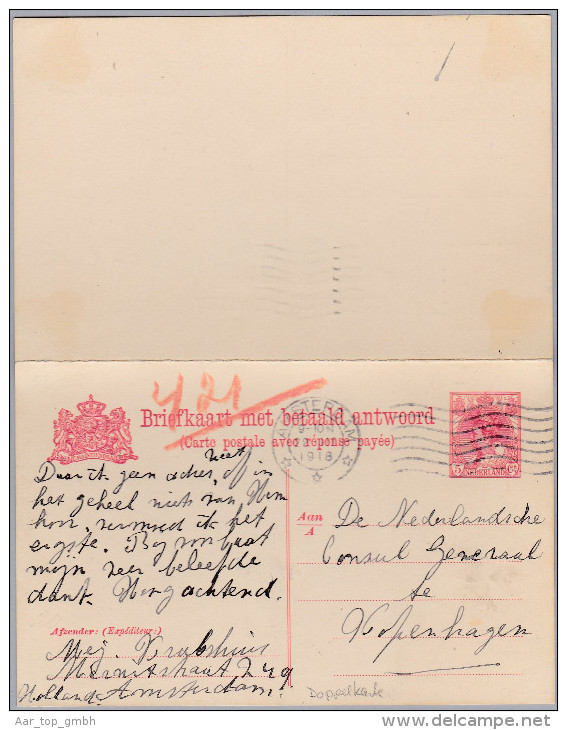 421
Briefkaart met betaald antwoord
(Carte postale avec réponse payée)
AMSTERDAM
1918
5 Ct
NEDERLAND
Daar ik geen acher heet, of in
het geheel niets van Hem
hoor, vermoed ik het
ergste. Bij voorbaat
mijn zeer beleefde
dank. Hoogachtend.
Aan
A
De Nederlandsche
Consul Generaal
te
Kopenhagen
Afzender: (Expéditeur:)
Mej.
Holland. Amsterdam.
Doppelkarte
Aar_top_gmbh
www.delcampe.net